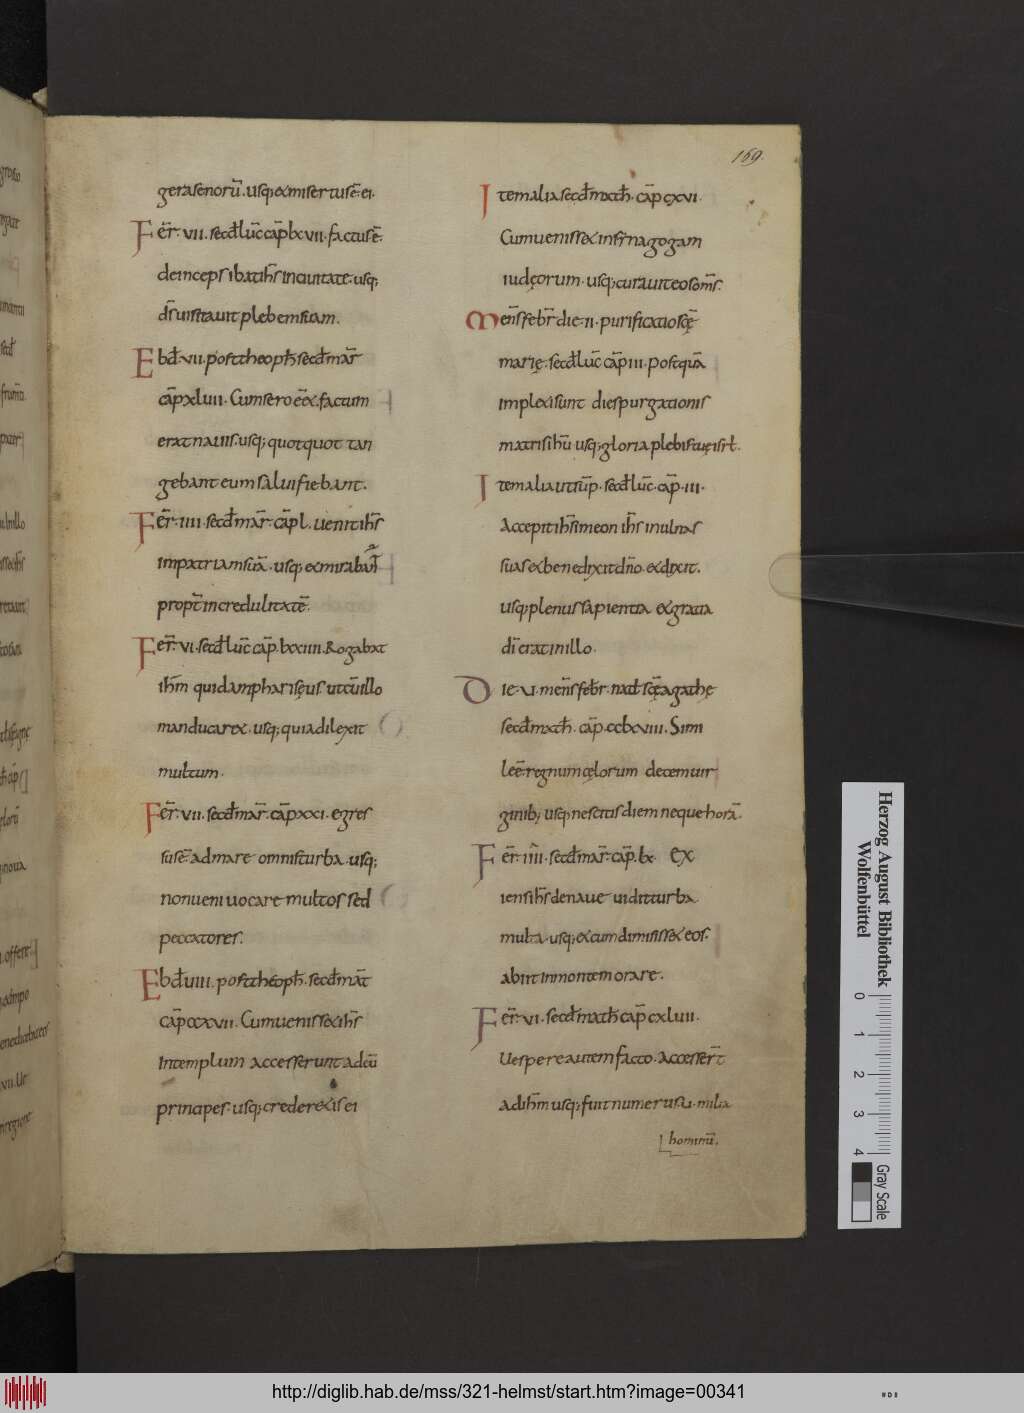 169.
gerasenorū. usq; & misertusē ei.
Fer̄. vii. secd̄ luc̄ cap̄ lxvii. factusē.
deinceps ibat ih̄s in ciuitate. usq;
dn̄s uisitauit plebem suam.
Ebd̄. vii. post theoph̄. secd̄ mar̄
cap̄ xlviii. Cum sero eēt. factum
erat nauis. usq; quotquot tan
gebant eum salui fiebant.
Fer̄. iiii. secd̄ mar̄. cap̄ l. uenit ih̄s
in patriam suā. usq; & mirabat̄
propt̄ incredulitatē.
Fer̄. vi. secd̄ luc̄ cap̄. lxxiiii. Rogabat
ih̄m quidam pharisęus ut cū illo
manducar&. usq; quia dilexit
multum.
Fer̄. vii. secd̄ mar̄. cap̄ xxi. egres
susē ad mare omnis turba. usq;
non ueni uocare multos sed
peccatores.
Ebd̄ viii. post theoph̄. secd̄ mat̄
cap̄ ccxvii. Cumueniss& ih̄s
In templum accesserunt ad eū
principes. usq; creder&is ei
Item alia secd̄ math̄. cap̄ cxvi.
Cum ueniss& in synagogam
iudęorum. usq; curauit eos om̄s.
Mens̄ febr̄ die. ii. purificatio sc̄ę
marię. secd̄ luc̄ cap̄ iii. postquā
impl&i sunt dies purgationis
matris ih̄u usq; gloria plebis tuę isrł.
Item alia ut sup̄. secd̄ luc̄. cap̄. iii.
Accepit ih̄ simeon ih̄s in ulnas
suas & benedixit dn̄o. & dixit.
usq; plenus sapientia & gratia
dī erat in illo.
Die. vi. mens̄ febr̄. nat̄ sc̄ę agathę
secd̄ math̄. cap̄. cclxviii. Simi
leē regnum cęlorum decem uir
ginib; usq; nescitis diem neque horā.
Fer̄. iiii. secd̄ mar̄. cap̄. lx. Ex
iens ih̄s de naue uidit turba
multa. usq; & cum dimisiss& eos.
abiit in montem orare.
Fer̄. vi. secd̄ math̄ cap̄ cxlvii.
Uespere autem facto. accesser̄t
ad ih̄m usq; fuit numerus. v. milia
hominū.
Herzog August Bibliothek
Wolfenbüttel
0 1 2 3 4
Gray Scale
http://diglib.hab.de/mss/321-helmst/start.htm?image=00341